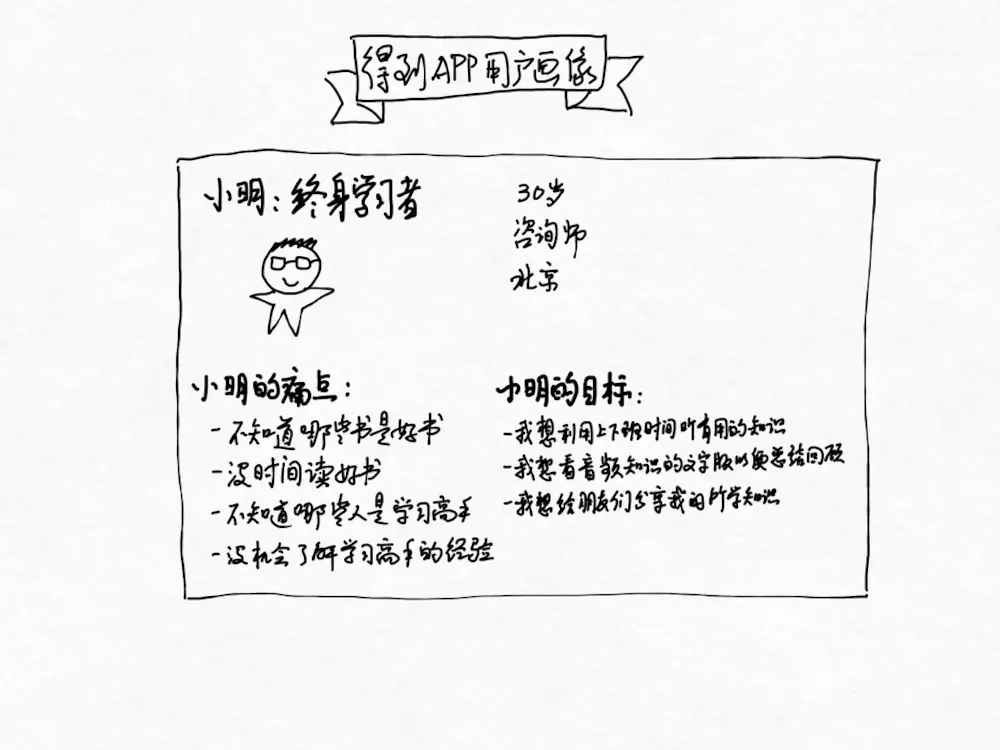 得到APP用户画像
小明：终身学习者
30岁
咨询师
北京
小明的痛点：
- 不知道哪些书是好书
- 没时间读好书
- 不知道哪些人是学习高手
- 没机会了解学习高手的经验
小明的目标：
- 我想利用上下班时间听有用的知识
- 我想看音频知识的文字版以便总结回顾
- 我想给朋友们分享我的所学知识